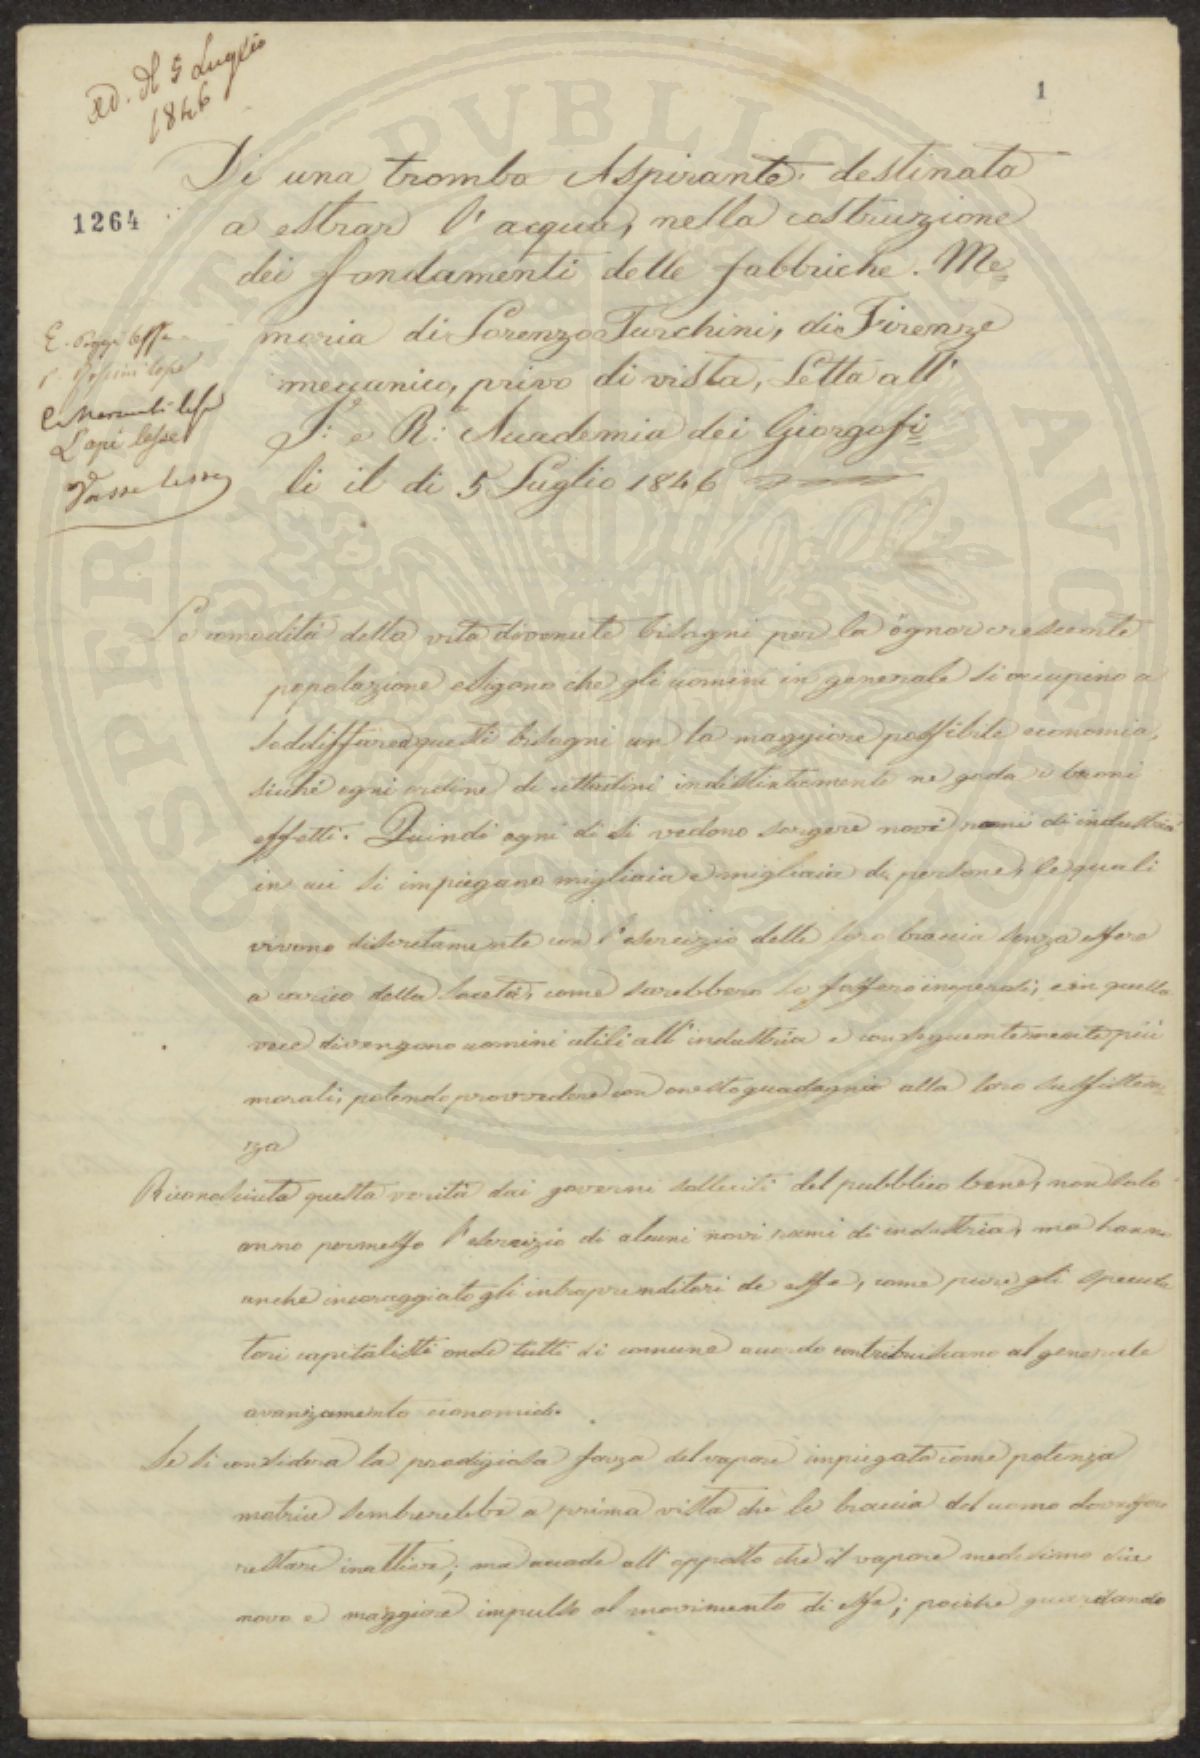 ad. dì 5 Luglio
1846
1
1264
Di una tromba Aspirante destinata
a estrar l'acqua, nella costruzione
dei fondamenti delle fabbriche. Me=
moria di Lorenzo Turchini, di Firenze
meccanico, privo di vista, Letta all'
I: e R: Accademia dei Giorgofi=
li il di 5 Luglio 1846
E. Poggi lesse
lesse
lesse
Lapi lesse
lesse
Le comodità della vita divenute bisogni per la ognor crescente
popolazione esigono che gli uomini in generale si occupino a
soddisffare a questi bisogni con la maggiore possibile economia,
sicche ogni ordine di cittadini indistintamente ne goda i buoni
effetti. Quindi ogni di si vedono sorgere novi rami di industria
in cui si impiegano migliaia e migliaia di persone, le quali
vivono discretamente con l'esercizio delle loro braccia senza essere
a carico della società, come sarebbero se fossero inoperosi, e in quella
vece divengono uomini utili all'industria e conseguentemente più
morali, potendo provvedere con onesto guadagnio alla loro sussisten=
za
Riconosciuta questa verità dai governi solleciti del pubblico bene, non solo
anno permesso l'esercizio di alcuni novi rami di industria, ma hanno
anche incoraggiato gli intraprenditori de esse, come pure gli specula
tori capitalisti onde tutti di comune accordo contribuiscano al generale
avanzamento economico.
Se si considera la prodigiosa forza del vapore impiegata come potenza
motrice sembrerebbe a prima vista che le braccia del uomo dovessero
restare inattive; ma accade all'opposto che il vapore medesimo die
novo e maggiore impulso al movimento di esse; poiche guardando